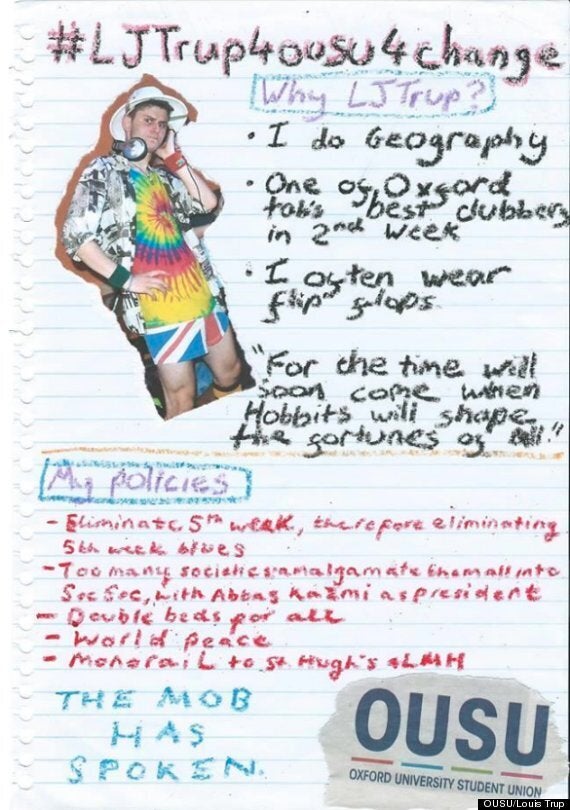 #LJTrup4ousu4change
Why LJTrup?
• I do Geography
• One of Oxford
tab's best clubbers
in 2nd week
• I often wear
flip flops.
"For the time will
soon come when
Hobbits will shape
the fortunes of all."
My policies
- Eliminate 5th week, therefore eliminating
5th week blues
- Too many societies: amalgamate them all into
Soc Soc, with Abbas Kazmi as president
- Double beds for all
- World peace
- Monorail to St Hugh's & LMH
THE MOB
HAS
SPOKEN.
OUSU
OXFORD UNIVERSITY STUDENT UNION
OUSU/Louis Trup